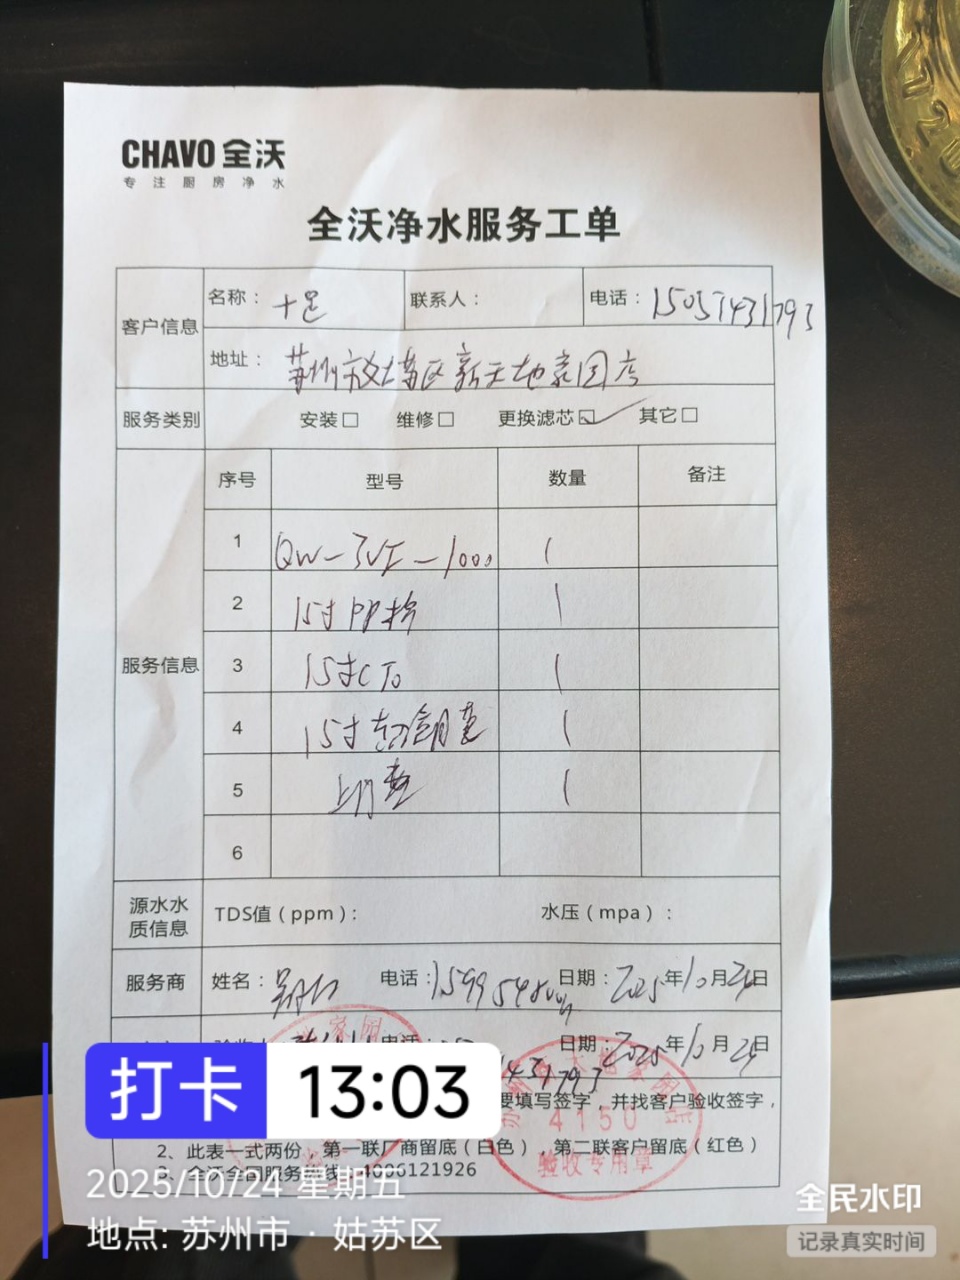 CHAVO 全沃
专注厨房净水
全沃净水服务工单
客户信息
名称： 十足
联系人：
电话： 15051431793
地址： 苏州市姑苏区新天地家园店
服务类别
安装□ 维修□ 更换滤芯☑ 其它□
服务信息
序号 型号 数量 备注
1 QW-3VI-1000 1
2 15寸PP棉 1
3 15寸CTO 1
4 15寸 1
5 1
6
源水水质信息
TDS值（ppm）： 水压（mpa）：
服务商 姓名： 电话： 日期：2025年10月24日
日期：2025年10月24日
431793
要填写签字，并找客户验收签字，
2、此表一式两份，第一联厂商留底（白色），第二联客户留底（红色）
3、全沃全国服务热线：4006121926
家园
4150
验收专用章
打卡 13:03
2025/10/24 星期五
地点: 苏州市 · 姑苏区
全民水印
记录真实时间